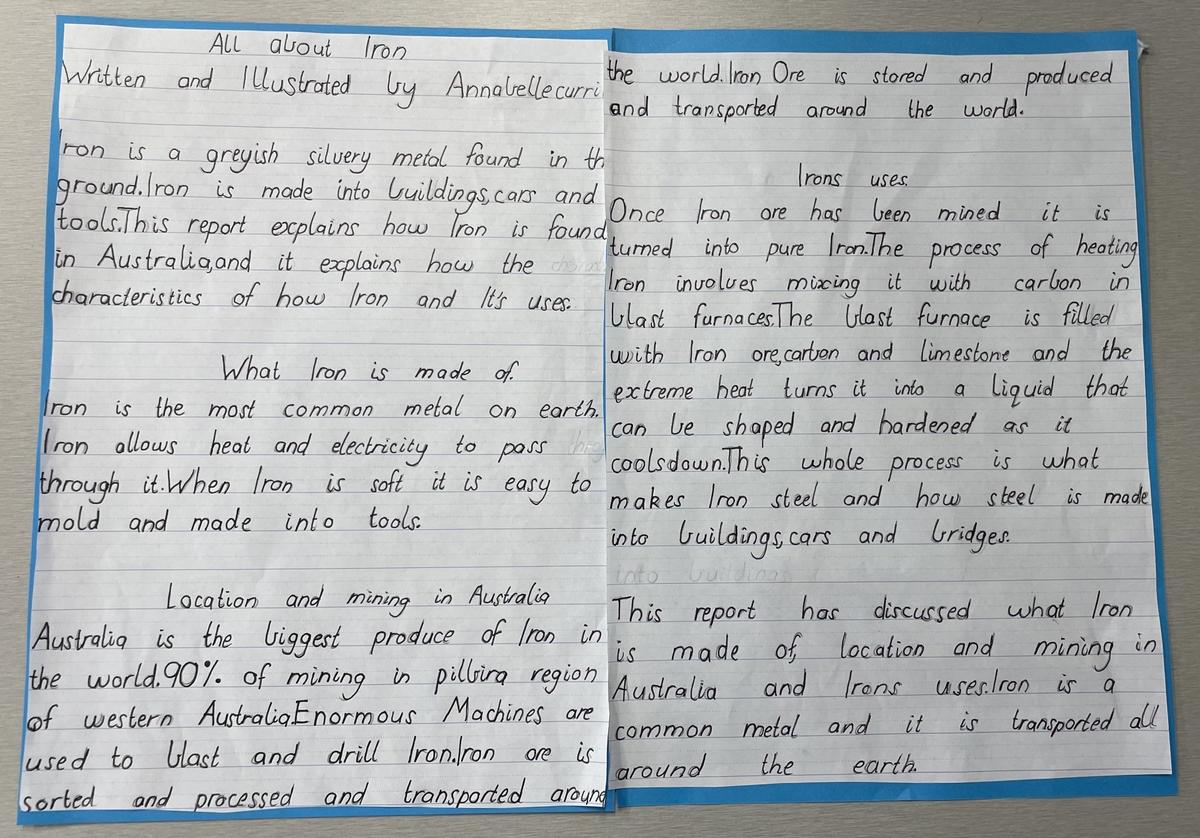 All about Iron
Written and Illustrated by Annabellecurri
Iron is a greyish silvery metal found in th
ground.Iron is made into buildings,cars and
tools.This report explains how Iron is found
in Australia,and it explains how the
characteristics of how Iron and It's uses.
What Iron is made of.
Iron is the most common metal on earth.
Iron allows heat and electricity to pass
through it.When Iron is soft it is easy to
mold and made into tools.
Location and mining in Australia
Australia is the biggest produce of Iron in
the world.90% of mining in pilbira region
of western Australia.Enormous Machines are
used to blast and drill Iron.Iron ore is
sorted and processed and transported around
the world.Iron Ore is stored and produced
and transported around the world.
Irons uses.
Once Iron ore has been mined it is
turned into pure Iron.The process of heating
Iron involves mixing it with carbon in
blast furnaces.The blast furnace is filled
with Iron ore,carbon and limestone and the
extreme heat turns it into a liquid that
can be shaped and hardened as it
coolsdown.This whole process is what
makes Iron steel and how steel is made
into buildings,cars and bridges.
into buildings
This report has discussed what Iron
is made of, location and mining in
Australia and Irons uses.Iron is a
common metal and it is transported all
around the earth.